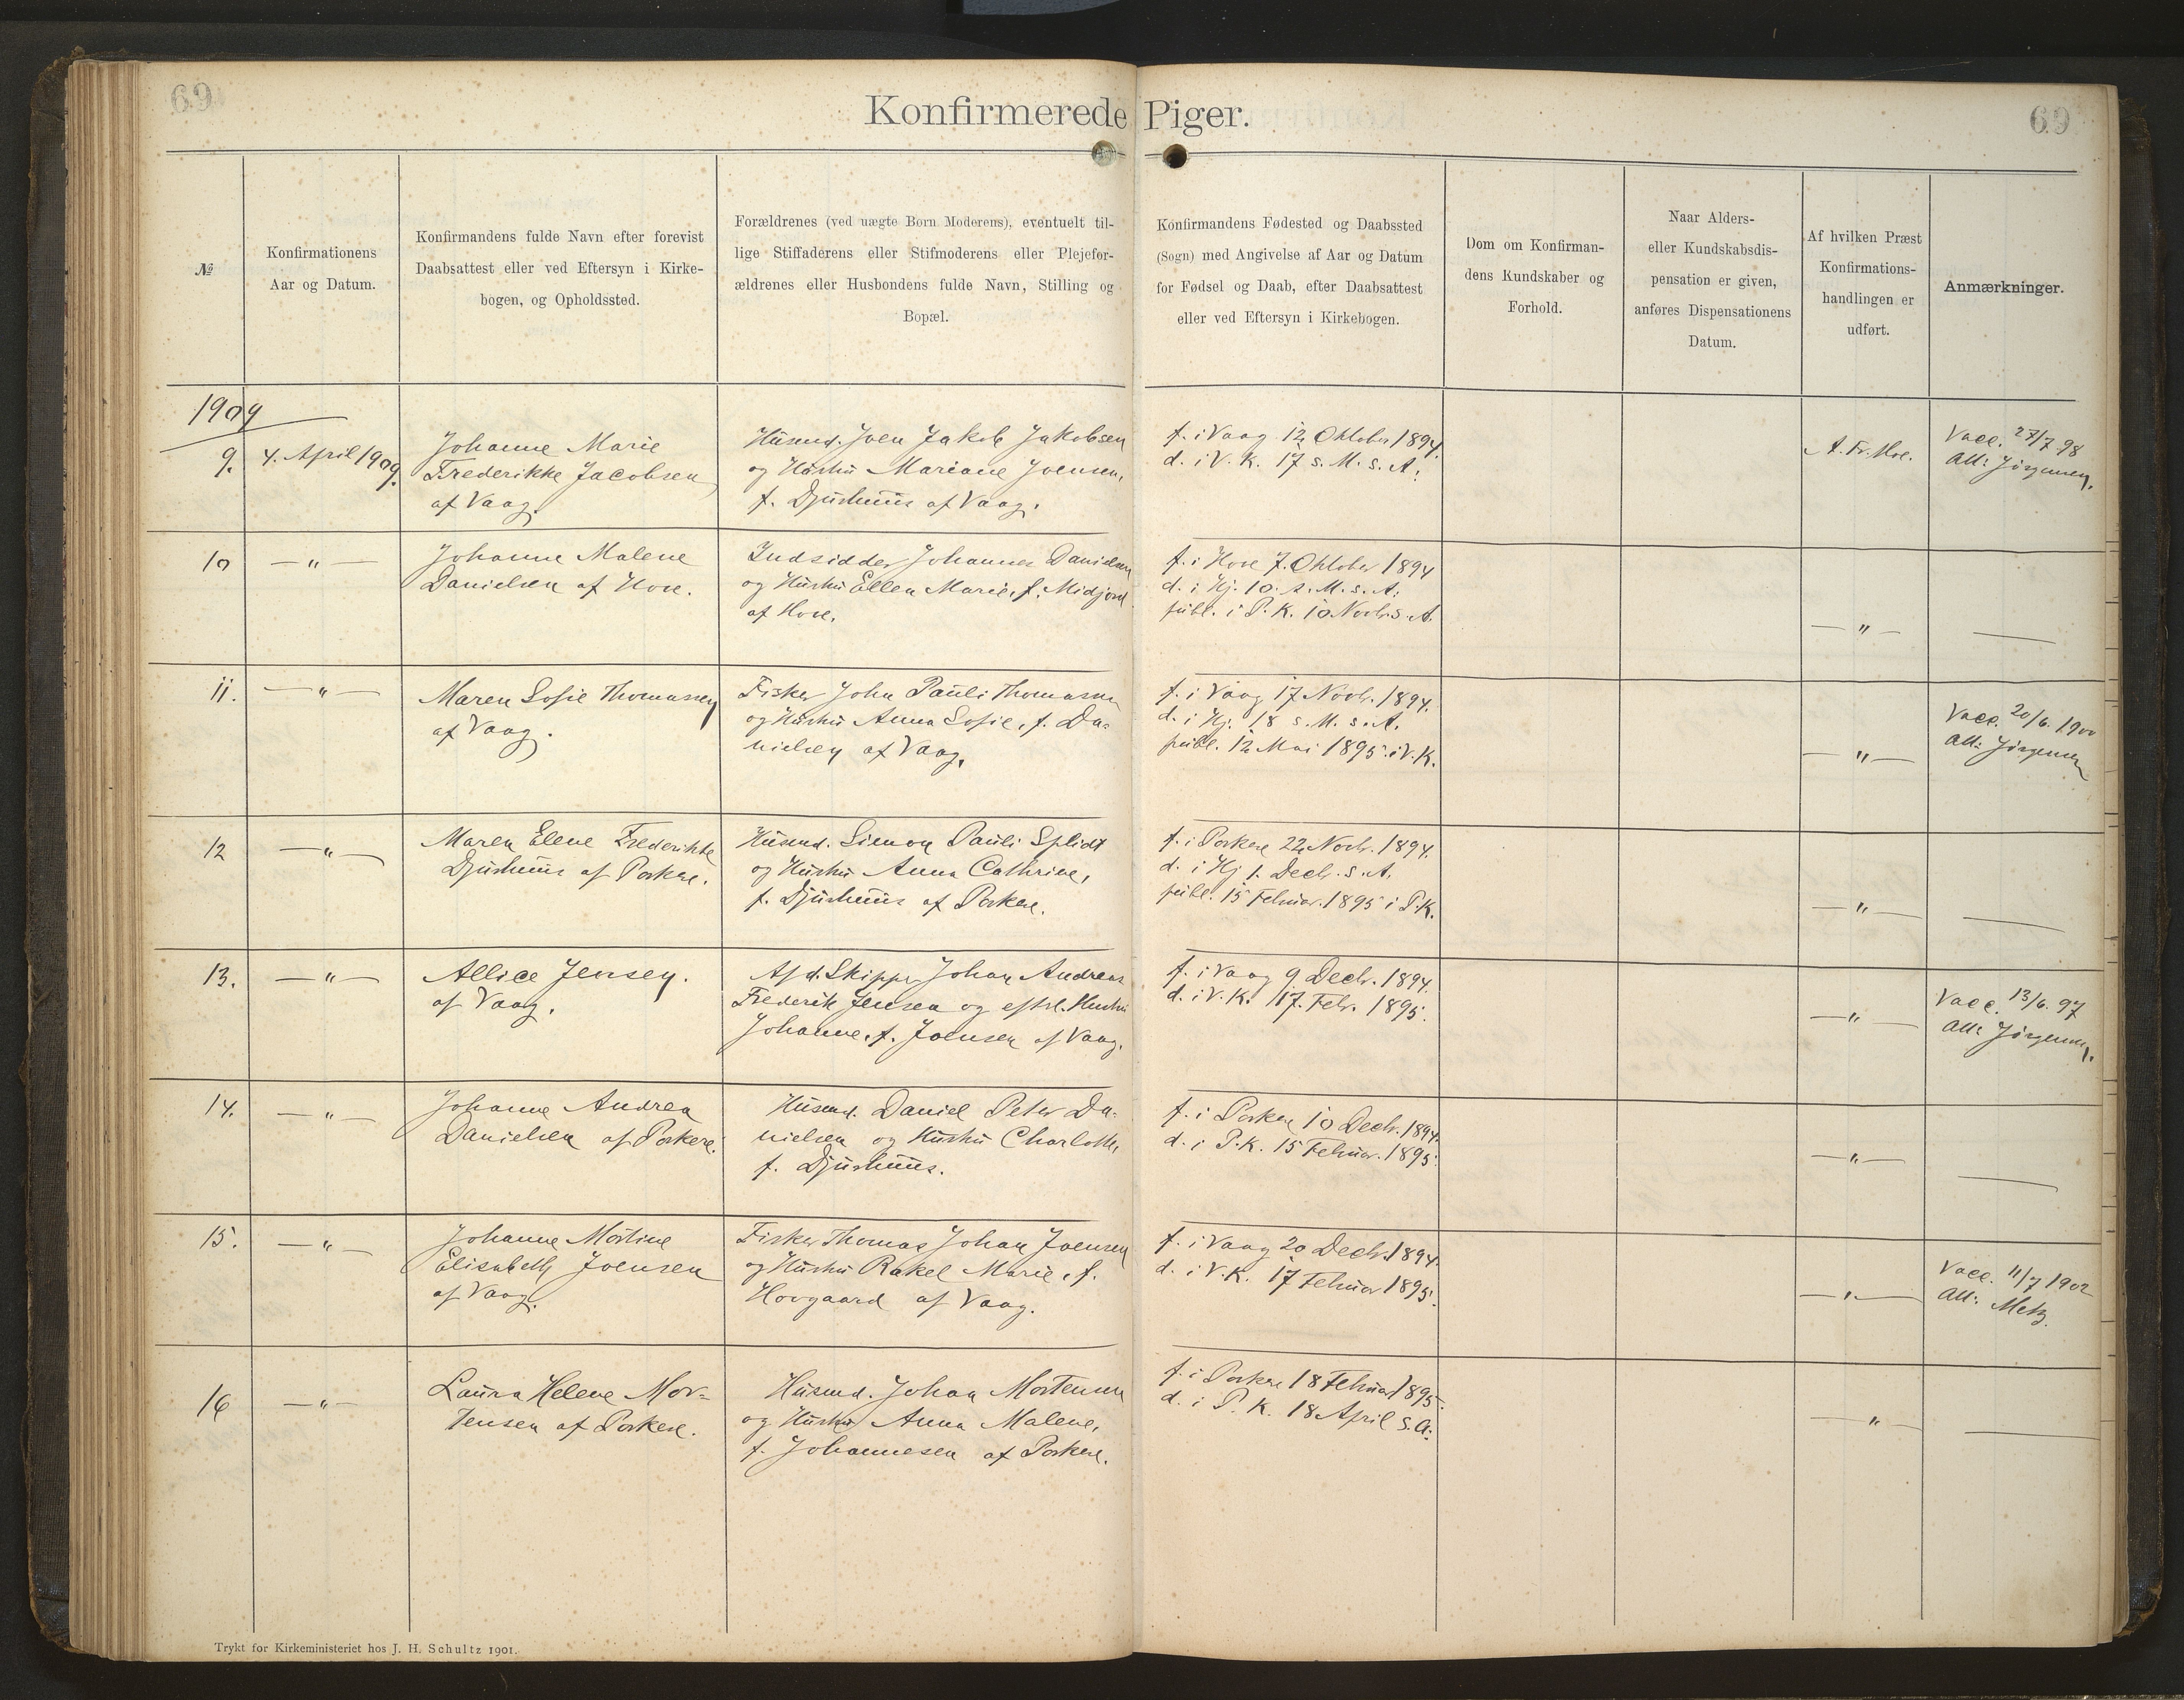 69
Konfirmerede Piger.
69
№
Konfirmationens
Aar og Datum.
Konfirmandens fulde Navn efter forevist
Daabsattest eller ved Eftersyn i Kirke-
bogen, og Opholdssted.
Forældrenes (ved uægte Børn Moderens), eventuelt til-
lige Stiffaderens eller Stifmoderens eller Plejefor-
ældrenes eller Husbondens fulde Navn, Stilling og
Bopæl.
Konfirmandens Fødested og Daabssted
(Sogn) med Angivelse af Aar og Datum
for Fødsel og Daab, efter Daabsattest
eller ved Eftersyn i Kirkebogen.
Dom om Konfirman-
dens Kundskaber og
Forhold.
Naar Alders-
eller Kundskabsdis-
pensation er given,
anføres Dispensationens
Datum.
Af hvilken Præst
Konfirmations-
handlingen er
udført.
Anmærkninger.
1909
9.
4. April 1909.
Johanne Marie
Frederikke Jacobsen
af Vaag.
Husmd. Joen Jakob Jakobsen
og Hustru Mariane Joensen,
f. Djurhuus af Vaag.
f. i Vaag 12 Oktober 1894.
d. i V. K. 17 s. M. s. A.
A. Fr.
Vacc. 27/7 98
Att: Jörgensen.
10
— " —
Johanne Malene
Danielsen af Hove.
Indsidder Johannes Danielsen
og Hustru Ellen Marie, f. Midjord
af Hove.
f. i Hove 7. Oktober 1894
d. i Hj. 10. s. M. s. A.
publ. i P. K. 10 Novb. s. A.
— " —
—
11.
— " —
Maren Sofie Thomassen
af Vaag.
Fisker John Pauli Thomassen
og Hustru Anna Sofie, f. Da-
nielsen af Vaag.
f. i Vaag 17 Novb. 1894.
d. i Hj. 18 s. M. s. A.
publ. 12 Mai 1895 i V. K.
— " —
Vacc. 20/6. 1900
Att: Jörgensen
12
— " —
Maren Elene Frederikke
Djurhuus af Porkere.
Husmd. Simon Pauli Splidt
og Hustru Anna Cathrine,
f. Djurhuus af Porkere.
f. i Porkere 22 Novb. 1894.
d. i Hj 1. Decb. s. A.
publ. 15 Februar. 1895 i P. K.
— " —
—
13.
— " —
Allice Jensen.
af Vaag.
Afd. Skipper Johan Andreas
Frederik Jensen og eftrl. Hustru
Johanne, f. Joensen af Vaag.
f. i Vaag 9 Decbr. 1894.
d. i V. K. 17. Febr. 1895.
— " —
Vacc. 13/6. 97
Att: Jörgensen.
14.
— " —
Johanne Andrea
Danielsen af Porkere.
Husmd. Daniel Peter Da-
nielsen og Hustru Charlotte,
f. Djurhuus.
f. i Porkere 10 Decb. 1894.
d. i P. K. 15 Februar. 1895.
— " —
—
15.
— " —
Johanne Mortine
Elisabeth Joensen
af Vaag.
Fisker Thomas Johan Joensen
og Hustru Rakel Marie, f.
Hovgaard af Vaag.
f. i Vaag 20 Decb. 1894.
d. i V. K. 17 Februar 1895.
— " —
Vacc. 11/7 1902
Att: Metz.
16
— " —
Laura Helene Mor-
tensen af Porkere.
Husmd. Johan Mortensen
og Hustru Anna Malene,
f. Johannesen af Porkere.
f. i Porkere 18 Februar 1895.
d. i P. K. 18 April s. A.
— " —
—
Trykt for Kirkeministeriet hos J. H. Schultz 1901.